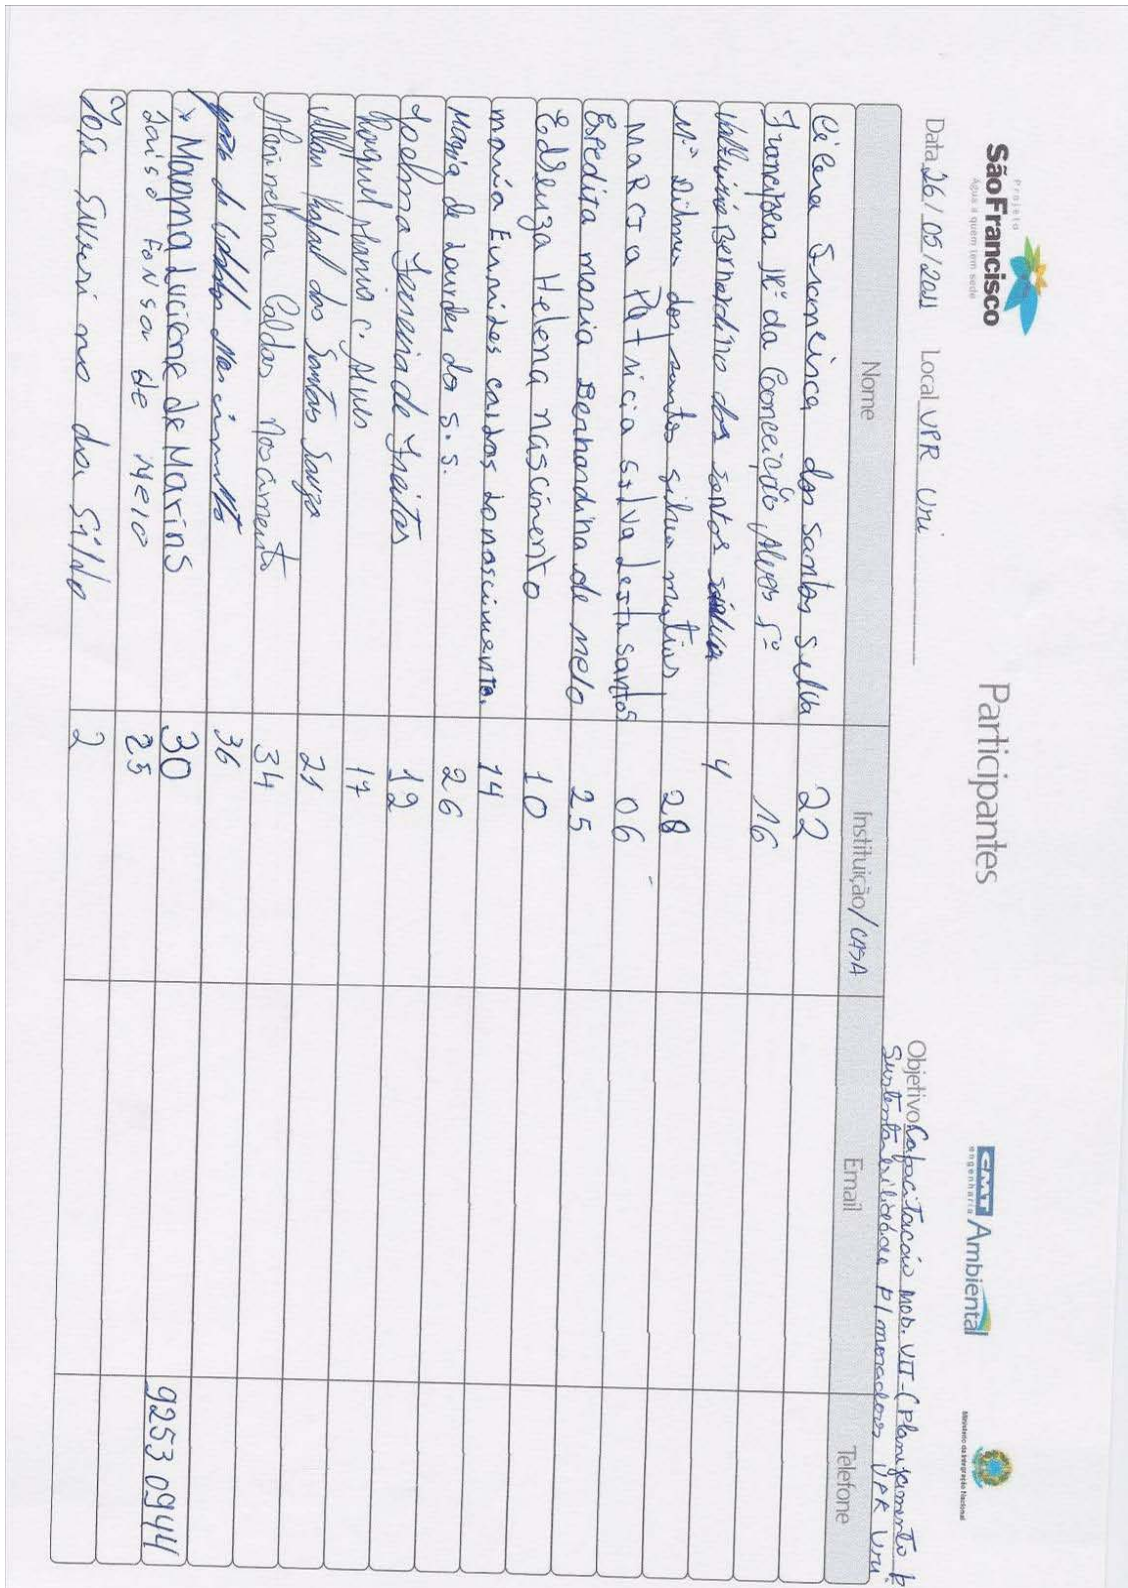 Projeto
São Francisco
Água a quem tem sede
Participantes
CMT Ambiental
engenharia
Ministério da Integração Nacional
Data 26/05/2011 Local VPR Uri
Objetivo: Capacitação Mod. VII - (Planejamento e
Sustentabilidade p/ moradores VPR Uri
Nome Instituição/CASA Email Telefone
Cícera Francisca dos Santos Silva 22
Francisca Mª da Conceição Alves Sº 16
Bernardino dos Santos 4
Mª Dilma dos santos silva 28
MaRcia Patricia silva santos 06
Expedita maria Benhardina de Melo 25
Edileuza Helena nascimento 10
maria Eunides caldas do nascimento. 14
Maria de Lourdes do S. S. 26
Joelma Ferreira de Freitas 12
C. Alves 17
Allan Rafael dos Santos Souza 21
Caldas Nascimento 34
Nascimento 36
* Mayma Luciene de Marins 30 9253 0944
de Melo 25
da Silva 2